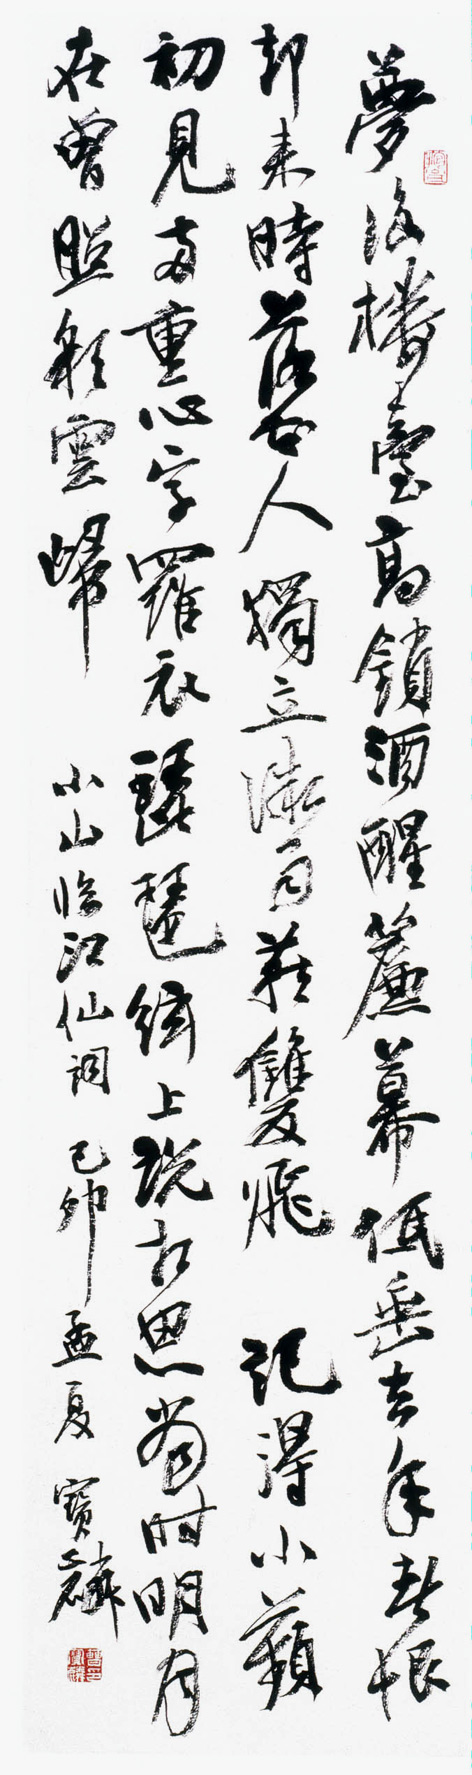 夢後樓臺高鎖酒醒簾幕低垂去年春恨
却來時落花人獨立微雨燕雙飛 記得小蘋
初見兩重心字羅衣琵琶絃上説相思當时明月
在曾照彩雲歸 小山臨江仙詞 己卯孟夏 寶麟